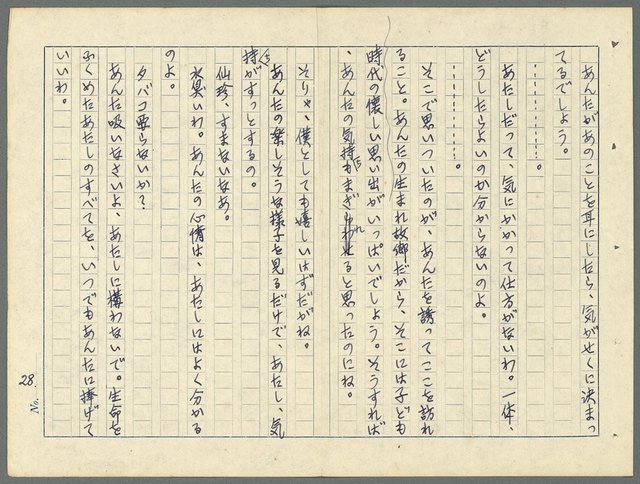 あんたがあのことを耳にしたら、気がせくに決まっ
てるでしょう。
…………。
あたしだって、気にかかって仕方がないわ。一体、
どうしたらよいのか分からないのよ。
…………。
そこで思いついたのが、あんたを誘ってここを訪れ
ること。あんたの生まれ故郷だから、そこには子ども
時代の懐しい思い出がいっぱいでしょう。そうすれば
、あんたの気持ちもまぎれると思ったのにね。
そりゃ、僕としても嬉しいはずだがね。
あんたの楽しそうな様子を見るだけで、あたし、気
持ちがすっとするの。
仙珍、すまないなあ。
水臭いわ。あんたの心情は、あたしにはよく分かる
のよ。
タバコ要らないか？
あんた吸いなさいよ、あたしに構わないで。生命を
ふくめたあたしのすべてを、いつでもあんたに捧げて
いいわ。
28
No.